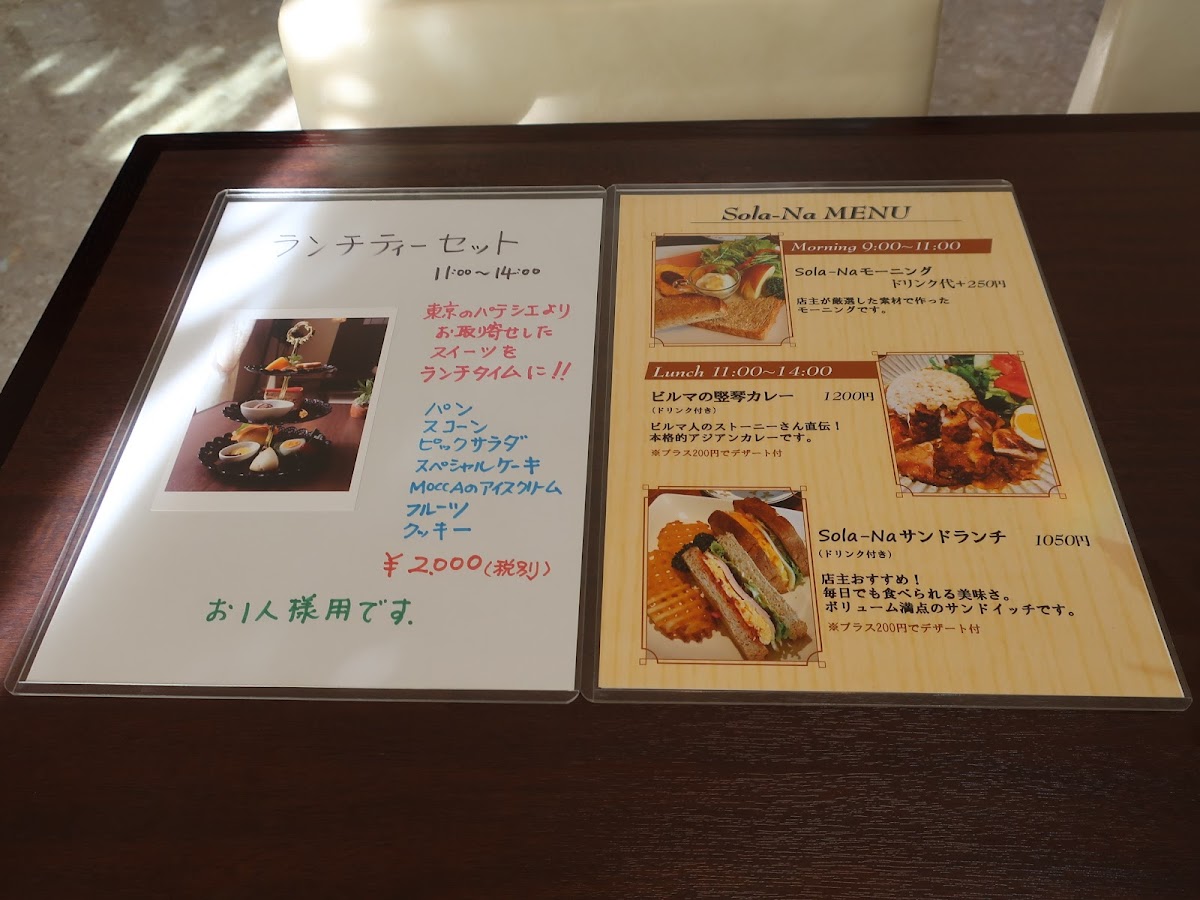 ランチティーセット
11:00～14:00
東京のパテシエより
お取り寄せした
スイーツを
ランチタイムに!!
パン
スコーン
ピックサラダ
スペシャルケーキ
MOCCAのアイスクリーム
フルーツ
クッキー
¥2,000(税別)
お1人様用です.
Sola-Na MENU
Morning 9:00~11:00
Sola-Naモーニング
ドリンク代+250円
店主が厳選した素材で作った
モーニングです。
Lunch 11:00~14:00
ビルマの竪琴カレー 1200円
(ドリンク付き)
ビルマ人のストーニーさん直伝！
本格的アジアンカレーです。
※プラス200円でデザート付
Sola-Naサンドランチ 1050円
(ドリンク付き)
店主おすすめ！
毎日でも食べられる美味さ。
ボリューム満点のサンドイッチです。
※プラス200円でデザート付